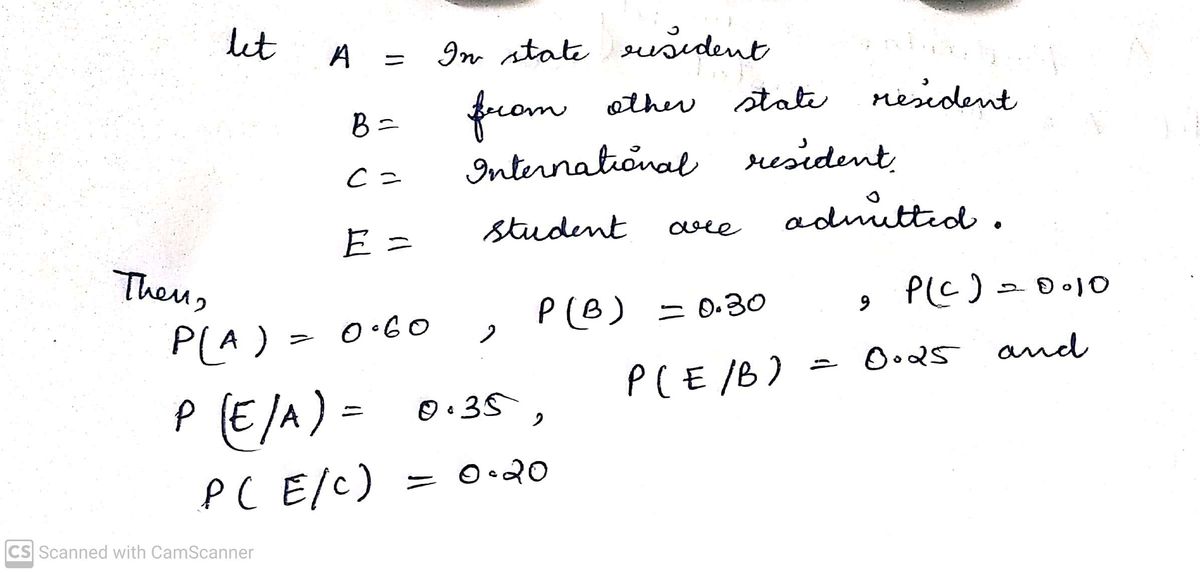 let A = In state resident
B = from other state resident
C = International resident.
E = student are admitted.
Then,
P(A) = 0.60 , P(B) = 0.30 , P(C) = 0.10
P(E/A) = 0.35 , P(E/B) = 0.25 and
P(E/C) = 0.20
CS Scanned with CamScanner